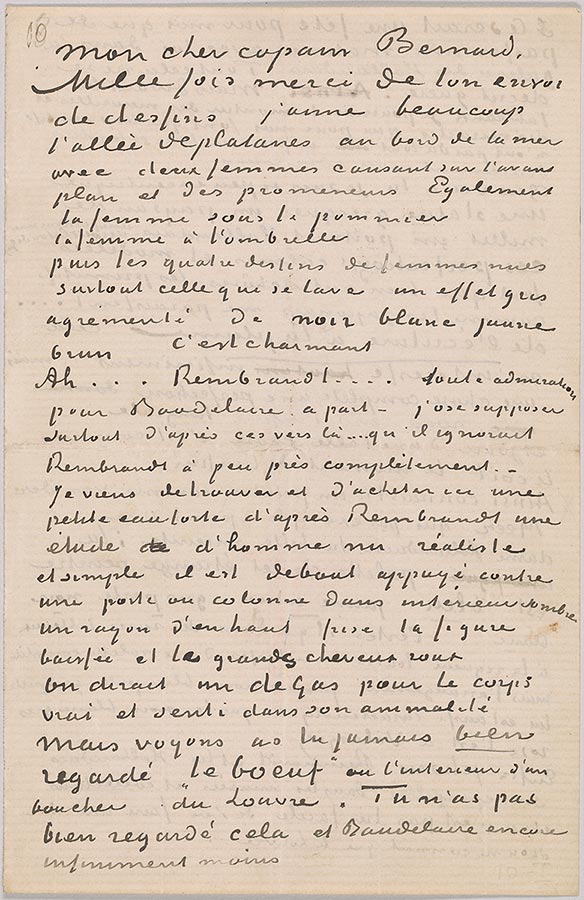 10
mon cher copain Bernard.
Mille fois merci de ton envoi
de dessins j'aime beaucoup
l'allée de platanes au bord de la mer
avec deux femmes causant sur l'avant
plan et des promeneurs Egalement
la femme sous le pommier
la femme à l'ombrelle
puis les quatre dessins de femmes nues
surtout celle qui se lave un effet gris
agrementé de noir blanc jaune
brun c'est charmant
Ah . . . Rembrandt . . . . toute admiration
pour Baudelaire a part – j'ose supposer
surtout d'après ces vers là ... qu'il ignorait
Rembrandt à peu près complètement. –
Je viens de trouver et d'acheter ici une
petite eau forte d'après Rembrandt une
étude d'homme nu réaliste
et simple il est debout appuyé contre
une porte ou colonne dans intérieur sombre
un rayon d'en haut frise la figure
baissée et les grands cheveux roux
On dirait un deGas pour le corps
vrai et senti dans son animalité
Mais voyons as tu jamais bien
regardé "le boeuf" ou l'interieur d'un
boucher du Louvre. Tu n'as pas
bien regardé cela et Baudelaire encore
infiniment moins